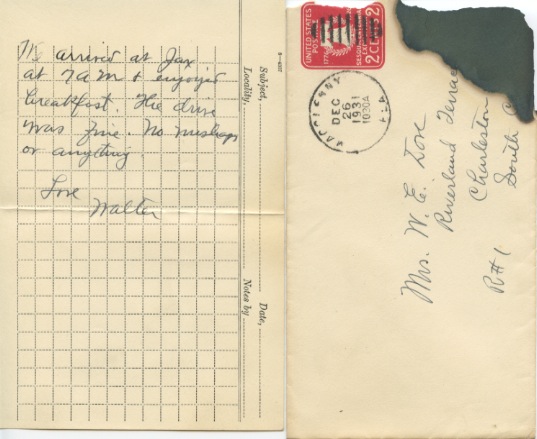 We arrived at Jax
at 7 AM & enjoyed
breakfast. The drive
was fine. No mishaps
or anything.
Love
Walter
Subject,
Locality,
Date,
Notes by
UNITED STATES
POSTAGE
1776
2 CENTS 2
DEC
26
1931
1030A
FLA
Mrs. W. E. Dove
Riverland Terrace
Charleston
South C
R#1